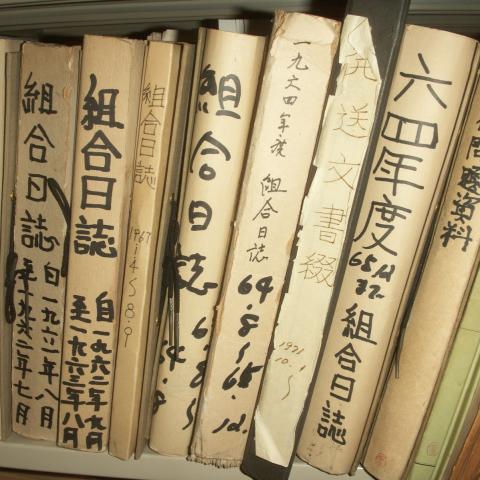 組合日誌
自一九六一年八月
至一九六二年七月
組合日誌
自一九六二年九月
至一九六三年八月
組合日誌
1967.4.5
8.9
組合日誌
64.
8
一九六四年度
組合日誌
64.8
65.
送文書綴
1971
10.1
六四年度
組合日誌
資料